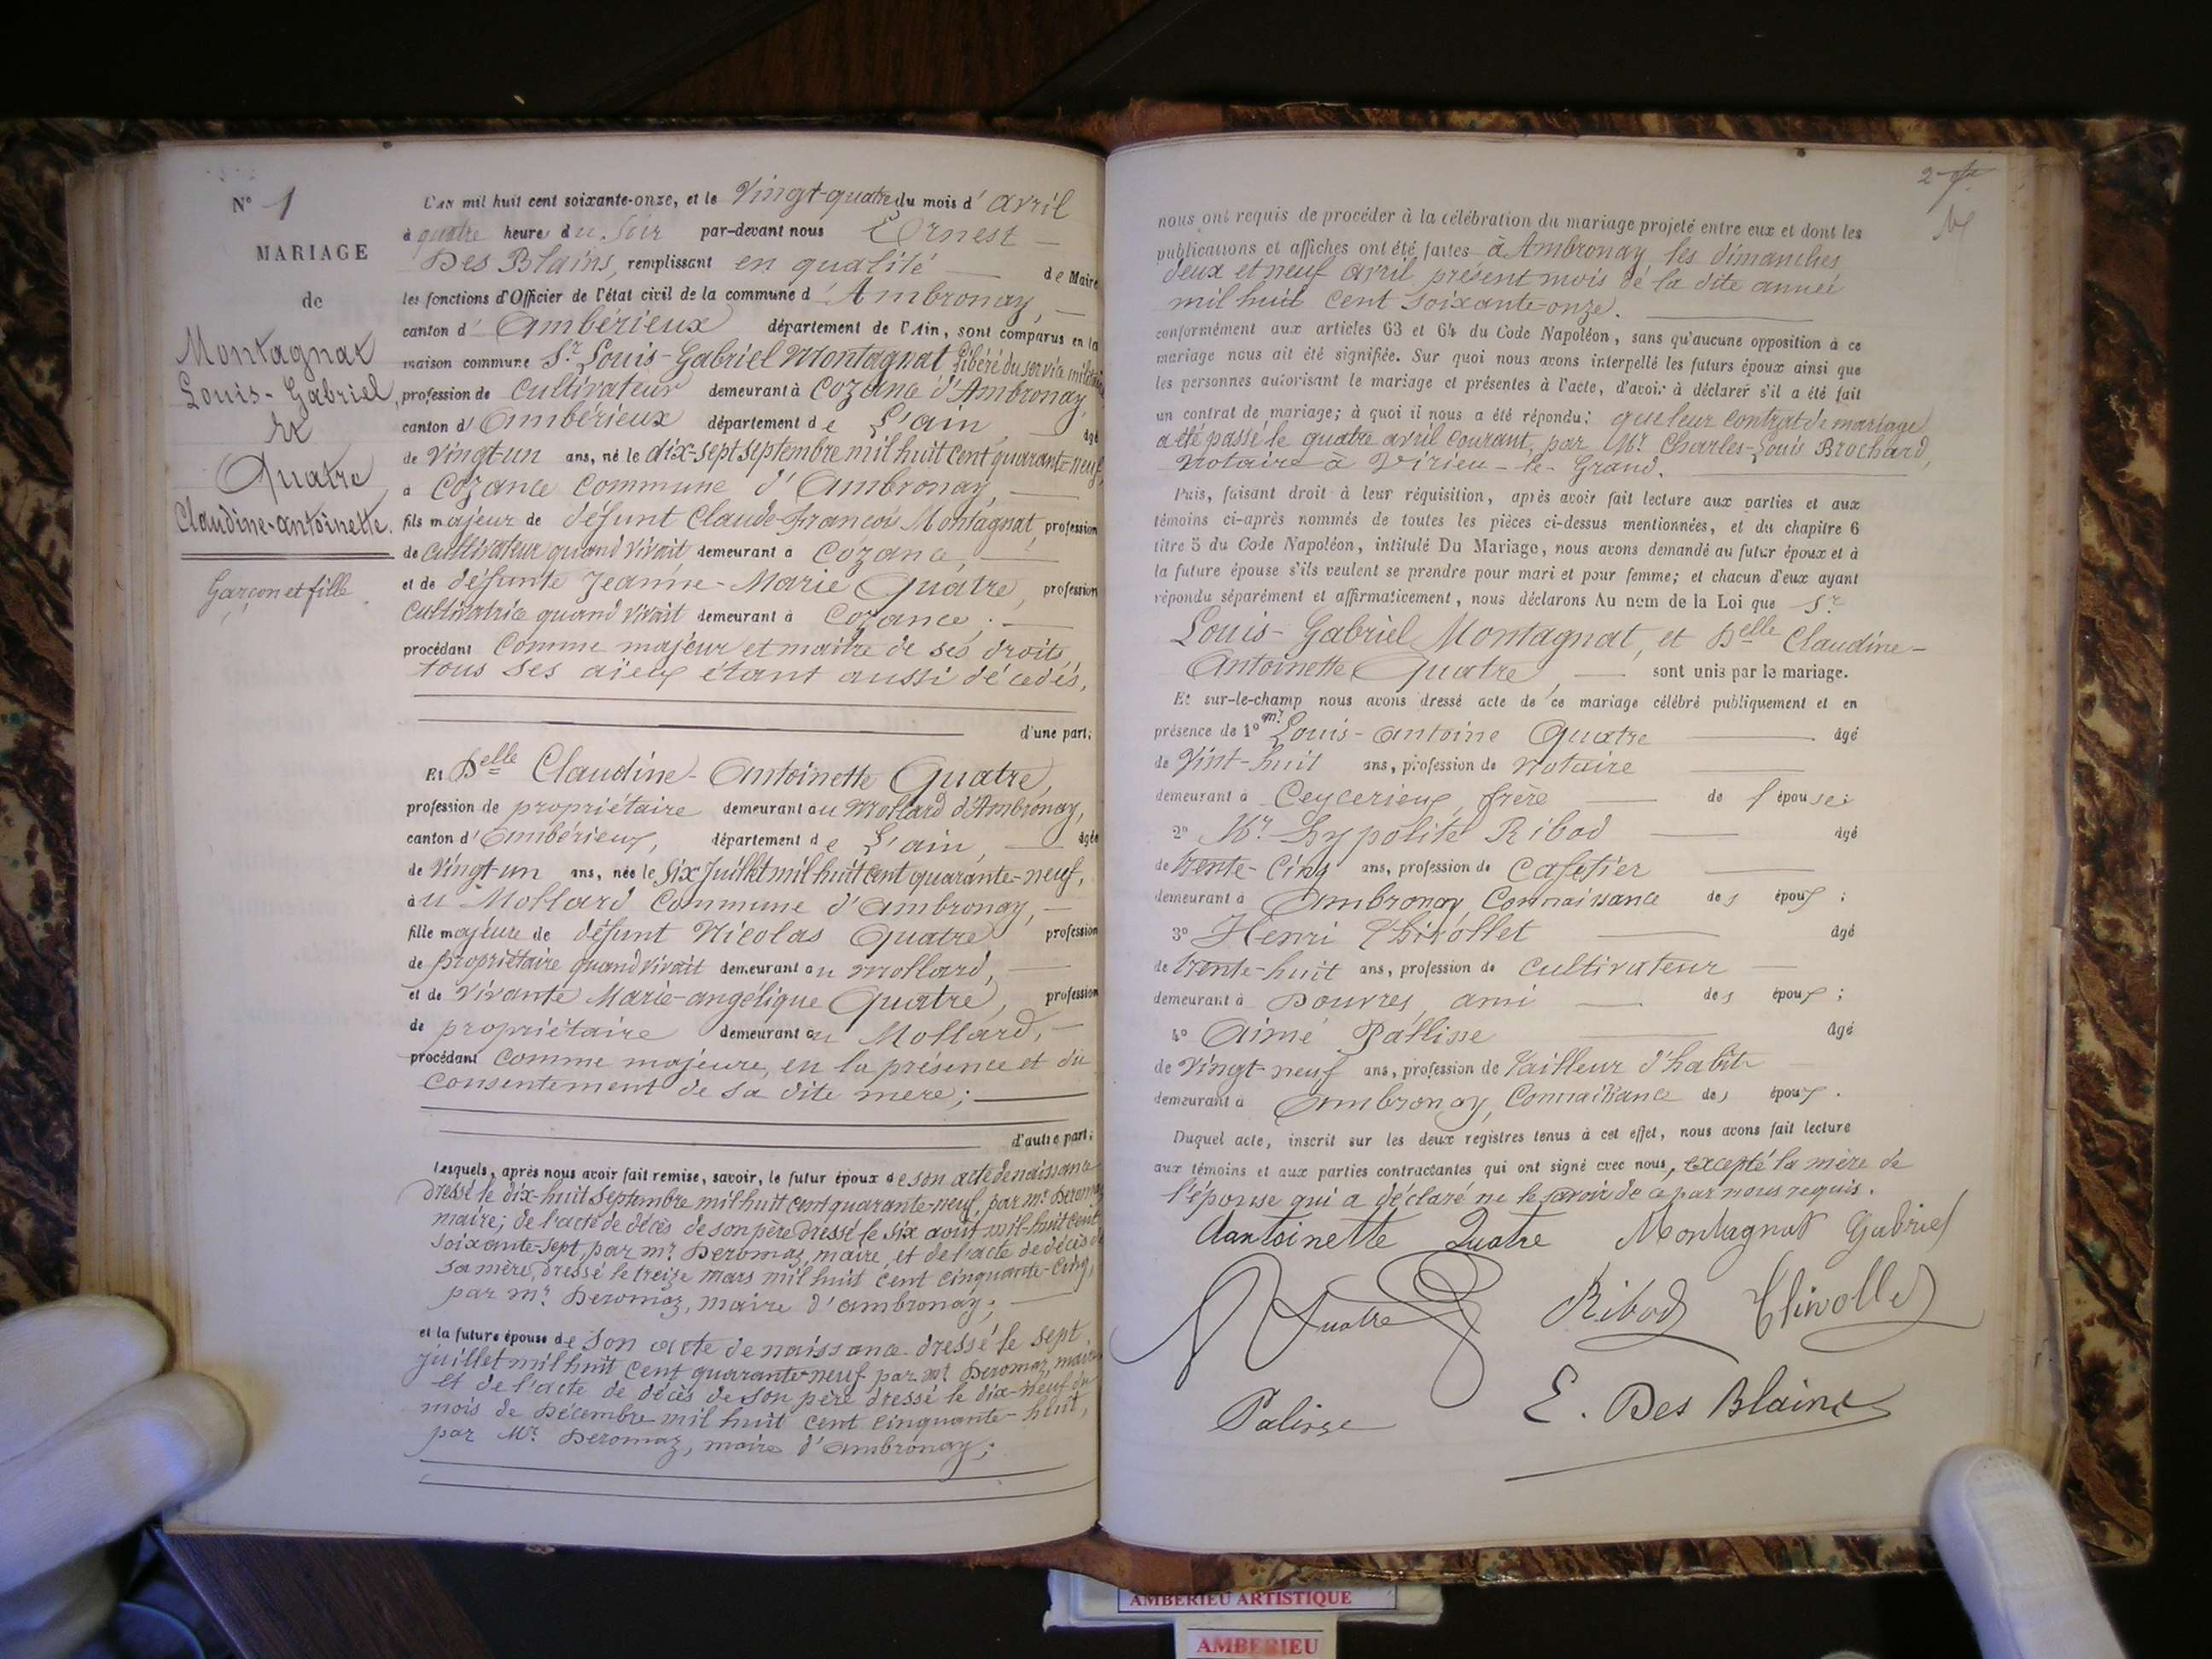 N° 1
MARIAGE
de
Montagnat
Louis-Gabriel,
et
Quatre
Claudine-antoinette.
Garçon et fille.
L'AN mil huit cent soixante-onze, et le Vingt-quatre du mois d'avril
à quatre heures du soir par-devant nous Ernest
Des Blains, remplissant en qualité de Maire
les fonctions d'Officier de l'état civil de la commune d'Ambronay,
canton d'Ambérieux département de l'Ain, sont comparus en la
maison commune Sr Louis-Gabriel Montagnat libéré du service militaire
profession de Cultivateur demeurant à Cozance d'Ambronay,
canton d'Ambérieux département de L'ain âgé
de Vingt-un ans, né le dix-sept septembre mil huit cent quarante-neuf,
à Cozance Commune d'Ambronay,
fils majeur de défunt Claude-François Montagnat, profession
de Cultivateur quand vivait demeurant à Cozance,
et de défunte Jeanne-Marie Quatre, profession
Cultivatrice quand vivait demeurant à Cozance;
procédant Comme majeur et maître de ses droits,
tous ses aïeux étant aussi décédés,
d'une part;
Et Delle Claudine-Antoinette Quatre,
profession de propriétaire demeurant au Mollard d'Ambronay,
canton d'Ambérieux, département de L'ain, âgée
de Vingt-un ans, née le Six Juillet mil huit cent quarante-neuf,
au Mollard Commune d'Ambronay,
fille majeure de défunt Nicolas Quatre profession
de propriétaire quand vivait demeurant au Mollard,
et de Vivante Marie-angélique Quatre, profession
de propriétaire demeurant au Mollard,
procédant Comme majeure, en la présence et du
Consentement de sa dite mère;
d'autre part;
Lesquels, après nous avoir fait remise, savoir, le futur époux de son acte de naissance
dressé le dix-huit Septembre mil huit cent quarante-neuf, par mr Deromaz
maire; de l'acte de décès de son père dressé le six août mil-huit cent
soixante-sept, par mr Deromaz, maire, et de l'acte de décès de
sa mère, dressé le treize mars mil huit cent cinquante-cinq,
par mr Deromaz, maire d'ambronay;
et la future épouse de son acte de naissance dressé le sept
juillet mil huit cent quarante-neuf par mr Deromaz, maire
et de l'acte de décès de son père dressé le dix-neuf du
mois de Décembre mil huit cent cinquante-huit,
par Mr Deromaz, maire d'ambronay;
2
nous ont requis de procéder à la célébration du mariage projeté entre eux et dont les
publications et affiches ont été faites à Ambronay les dimanches
deux et neuf avril présent mois de la dite année
mil huit cent soixante-onze.
conformément aux articles 63 et 64 du Code Napoléon, sans qu'aucune opposition à ce
mariage nous ait été signifiée. Sur quoi nous avons interpellé les futurs époux ainsi que
les personnes autorisant le mariage et présentes à l'acte, d'avoir à déclarer s'il a été fait
un contrat de mariage; à quoi il nous a été répondu: que leur contrat de mariage
a été passé le quatre avril courant, par Mr Charles-Louis Brochard,
notaire à Virieu-le-Grand.
Puis, faisant droit à leur réquisition, après avoir fait lecture aux parties et aux
témoins ci-après nommés de toutes les pièces ci-dessus mentionnées, et du chapitre 6
titre 5 du Code Napoléon, intitulé Du Mariage, nous avons demandé au futur époux et à
la future épouse s'ils veulent se prendre pour mari et pour femme; et chacun d'eux ayant
répondu séparément et affirmativement, nous déclarons Au nom de la Loi que Sr
Louis-Gabriel Montagnat, et Delle Claudine-
Antoinette Quatre, sont unis par le mariage.
Et sur-le-champ nous avons dressé acte de ce mariage célébré publiquement et en
présence de 1° mr Louis-Antoine Quatre âgé
de Vint-huit ans, profession de Notaire
demeurant à Ceyzerieux, frère de l'épouse;
2° Mr Hypolite Ribod âgé
de trente-cinq ans, profession de Cafetier
demeurant à Ambronay Connaissance des époux;
3° Henri Thivollet âgé
de trente-huit ans, profession de Cultivateur
demeurant à Douvres, ami des époux;
4° Aimé Pallisse âgé
de Vingt-neuf ans, profession de Tailleur d'habits
demeurant à Ambronay, Connaissance des époux.
Duquel acte, inscrit sur les deux registres tenus à cet effet, nous avons fait lecture
aux témoins et aux parties contractantes qui ont signé avec nous, excepté la mère de
l'épouse qui a déclaré ne le savoir de ce par nous requis.
Aantoinette Quatre Montagnat Gabriel
Quatre Ribod Thivollet
Palisse E. Des Blains
AMBERIEU ARTISTIQUE
AMBERIEU